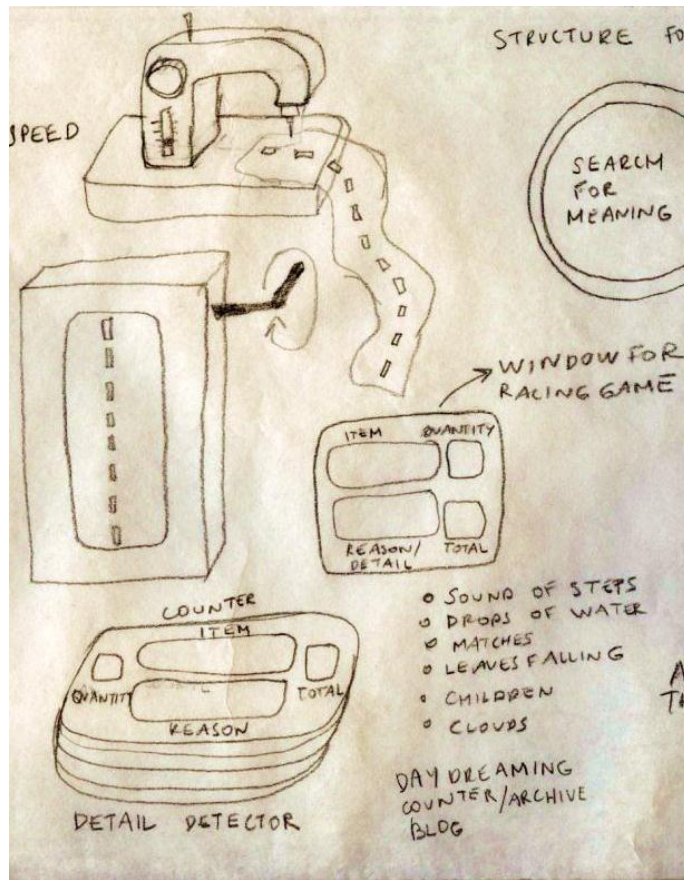 STRUCTURE FO
SPEED
SEARCH
FOR
MEANING
WINDOW FOR
RACING GAME
ITEM QUANTITY
REASON/ TOTAL
DETAIL
COUNTER
ITEM
QUANTITY TOTAL
REASON
DETAIL DETECTOR
SOUND OF STEPS
DROPS OF WATER
MATCHES
LEAVES FALLING
CHILDREN
CLOUDS
A
TH
DAY DREAMING
COUNTER/ARCHIVE
BLOG